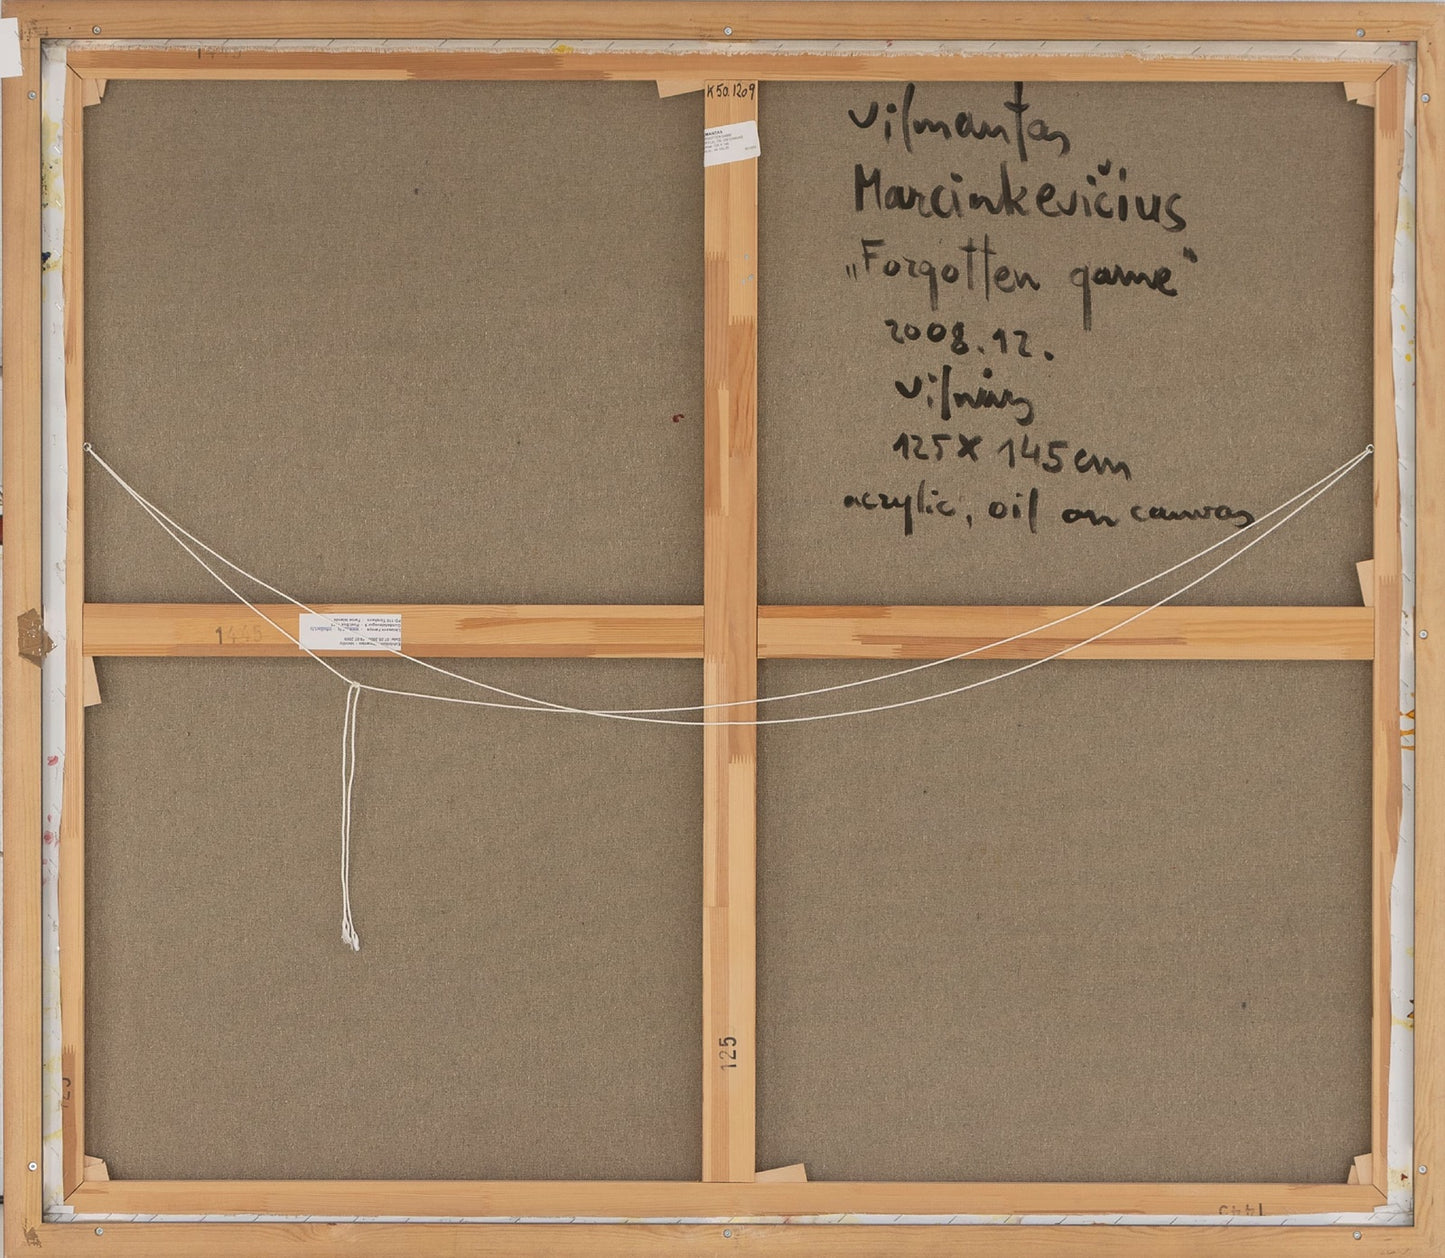 K50.1209
Vilmantas
Marcinkevičius
„Forgotten game“
2008.12.
Vilnius
125 X 145 cm
acrylic, oil on canvas
1445
125